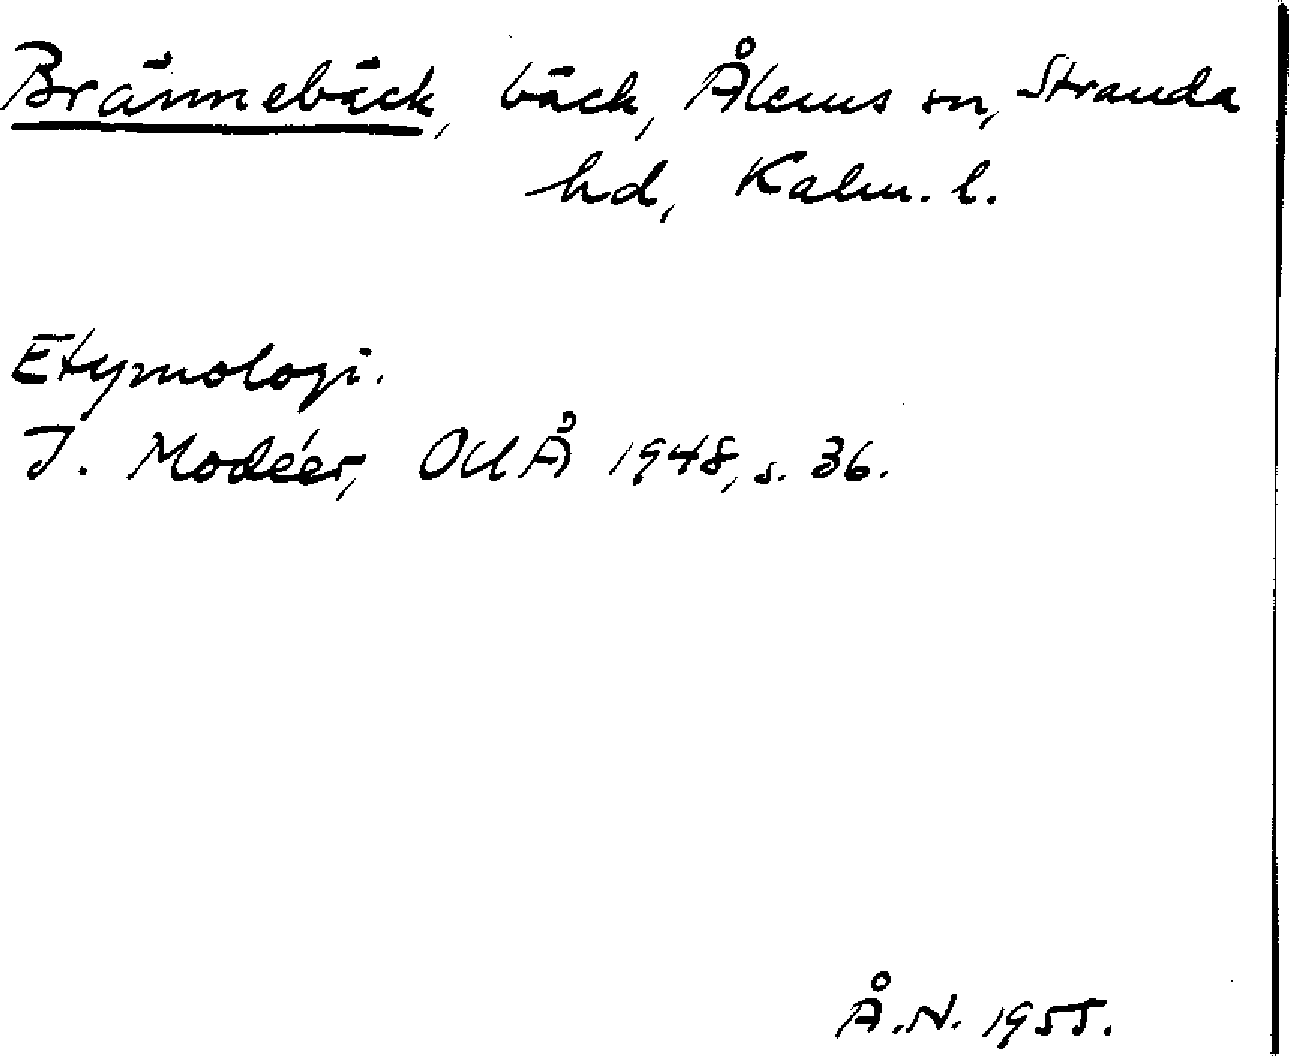 Brännebäck, bäck, Ålems sn, Stranda
hd, Kalm. l.
Etymologi.
I. Modéer, OUÅ 1948, s. 36.
Å.N. 1955.